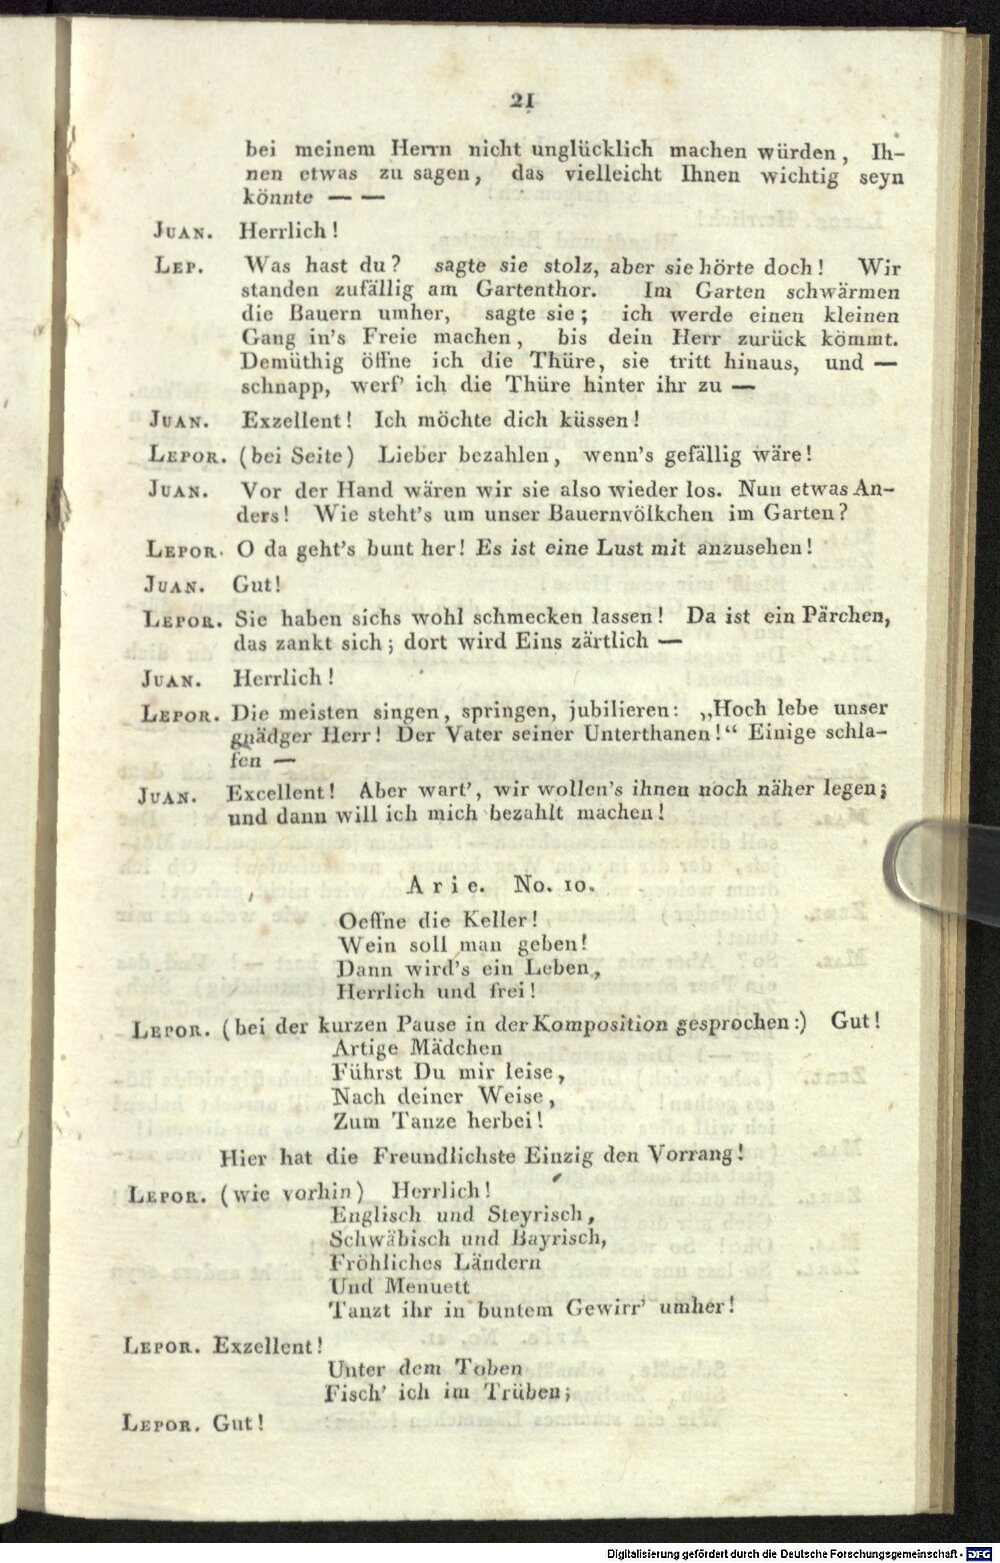 21
bei meinem Herrn nicht unglücklich machen würden, Ih-
nen etwas zu sagen, das vielleicht Ihnen wichtig seyn
könnte — —
JUAN. Herrlich!
LEP. Was hast du? sagte sie stolz, aber sie hörte doch! Wir
standen zufällig am Gartenthor. Im Garten schwärmen
die Bauern umher, sagte sie; ich werde einen kleinen
Gang in's Freie machen, bis dein Herr zurück kömmt.
Demüthig öffne ich die Thüre, sie tritt hinaus, und —
schnapp, werf' ich die Thüre hinter ihr zu —
JUAN. Exzellent! Ich möchte dich küssen!
LEPOR. (bei Seite) Lieber bezahlen, wenn's gefällig wäre!
JUAN. Vor der Hand wären wir sie also wieder los. Nun etwas An-
ders! Wie steht's um unser Bauernvölkchen im Garten?
LEPOR. O da geht's bunt her! Es ist eine Lust mit anzusehen!
JUAN. Gut!
LEPOR. Sie haben sichs wohl schmecken lassen! Da ist ein Pärchen,
das zankt sich; dort wird Eins zärtlich —
JUAN. Herrlich!
LEPOR. Die meisten singen, springen, jubilieren: „Hoch lebe unser
gnädger Herr! Der Vater seiner Unterthanen!“ Einige schla-
fen —
JUAN. Excellent! Aber wart', wir wollen's ihnen noch näher legen;
und dann will ich mich bezahlt machen!
Arie. No. 10.
Oeffne die Keller!
Wein soll man geben!
Dann wird's ein Leben,
Herrlich und frei!
LEPOR. (bei der kurzen Pause in der Komposition gesprochen:) Gut!
Artige Mädchen
Führst Du mir leise,
Nach deiner Weise,
Zum Tanze herbei!
Hier hat die Freundlichste Einzig den Vorrang!
LEPOR. (wie vorhin) Herrlich!
Englisch und Steyrisch,
Schwäbisch und Bayrisch,
Fröhliches Ländern
Und Menuett
Tanzt ihr in buntem Gewirr' umher!
LEPOR. Exzellent!
Unter dem Toben
Fisch' ich im Trüben;
LEPOR. Gut!
Digitalisierung gefördert durch die Deutsche Forschungsgemeinschaft - DFG